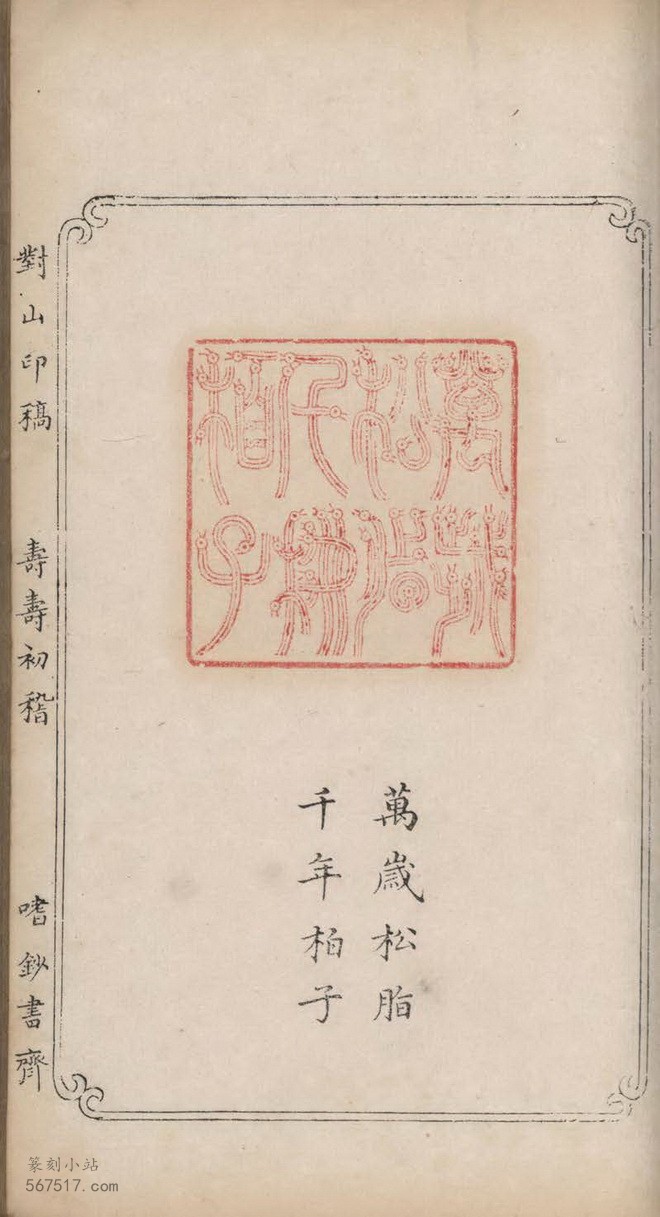 萬歲松脂
千年柏子
對山印稿
壽壽初稽
嗜鈔書齊
篆刻小站
567517.com